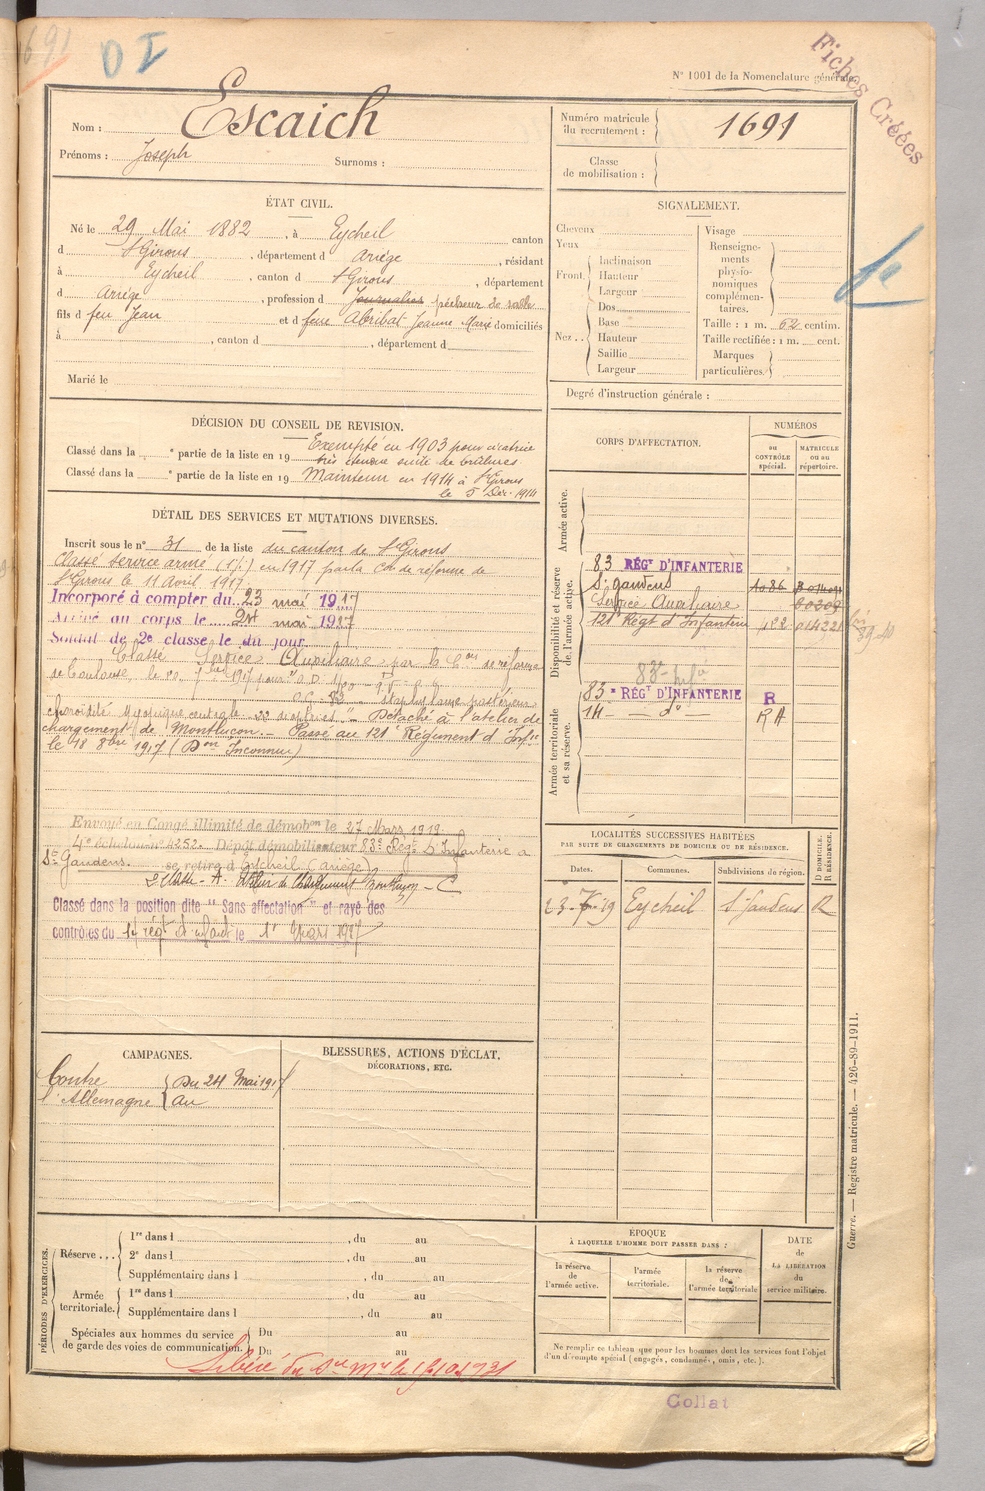 1691
D I
Fiches Créées
N° 1001 de la Nomenclature générale.
Nom : Escaich
Prénoms : Joseph Surnoms :
Numéro matricule du recrutement : 1691
Classe de mobilisation :
ÉTAT CIVIL.
Né le 29 Mai 1882, à Eycheil canton
d St Girons, département d Ariège, résidant
à Eycheil, canton d St Girons, département
d Ariège, profession d Journalier pêcheur de sable
fils d feu Jean et d feue Abribat Jeanne Marie domiciliés
à , canton d , département d
Marié le
SIGNALEMENT.
Cheveux
Yeux
Front. Inclinaison
Hauteur
Largeur
Nez.. Dos
Base
Hauteur
Saillie
Largeur
Visage
Renseignements physionomiques complémentaires.
Taille : 1 m. 62 centim.
Taille rectifiée : 1 m. cent.
Marques particulières.
Degré d'instruction générale :
DÉCISION DU CONSEIL DE REVISION.
Classé dans la e partie de la liste en 19 Exempté en 1903 pour cicatrice
très étendue suite de brûlures
Classé dans la e partie de la liste en 19 Maintenu en 1914 à St Girons
le 5 Déc. 1914
DÉTAIL DES SERVICES ET MUTATIONS DIVERSES.
Inscrit sous le n° 31 de la liste du canton de St Girons
Classé service armé en 1917 par la Con de réforme de
St Girons le 11 Avril 1917.
Incorporé à compter du 23 mai 1917
Arrivé au corps le 24 mai 1917
Soldat de 2e classe le dit jour
Classé Service Auxiliaire par la Con de réforme
de Toulouse, le 20 1917 pour O.D.
staphylome postérieur
choroïdite myopique centrale Détaché à l'atelier de
chargement de Montluçon. Passé au 121e Régiment d'Infie
le 18 8bre 1917 (Don Inconnue)
Envoyé en Congé illimité de démobon le 27 Mars 1919
4e échelon n° 4252. Dépôt démobilisateur 83e Régt d'Infanterie à
St Gaudens. se retire à Eycheil (Ariège)
Classé dans la position dite "Sans affectation" et rayé des
contrôles du 14 régt d'infant le 1er Mars 1927
CORPS D'AFFECTATION.
NUMÉROS
au CONTRÔLE spécial.
MATRICULE ou au répertoire.
Armée active.
Disponibilité et réserve de l'armée active.
83 RÉGt D'INFANTERIE
St gaudens 1086
Service Auxiliaire 60309
121e Régt d'Infanterie 122 014321
Armée territoriale et sa réserve.
83e Infie
83e RÉGt D'INFANTERIE R
14 — do — RA
LOCALITÉS SUCCESSIVES HABITÉES
PAR SUITE DE CHANGEMENTS DE DOMICILE OU DE RÉSIDENCE.
Dates. Communes. Subdivisions de région. D DOMICILE. R RÉSIDENCE.
23-7-19 Eycheil St Gaudens R
CAMPAGNES.
Contre l'Allemagne Du 24 Mai 1917
au
BLESSURES, ACTIONS D'ÉCLAT,
DÉCORATIONS, ETC.
PÉRIODES D'EXERCICES.
Réserve... 1re dans l , du au
2e dans l , du au
Supplémentaire dans l , du au
Armée territoriale. 1re dans l , du au
Supplémentaire dans l , du au
Spéciales aux hommes du service de garde des voies de communication. Du au
Du au
Libéré du Sce Mre le 15-10-1931
ÉPOQUE
À LAQUELLE L'HOMME DOIT PASSER DANS :
la réserve de l'armée active.
l'armée territoriale.
la réserve de l'armée territoriale
DATE de LA LIBÉRATION du service militaire.
Ne remplir ce tableau que pour les hommes dont les services font l'objet
d'un décompte spécial (engagés, condamnés, omis, etc.).
Guerre. — Registre matricule. — 426-89-1911.
Collat